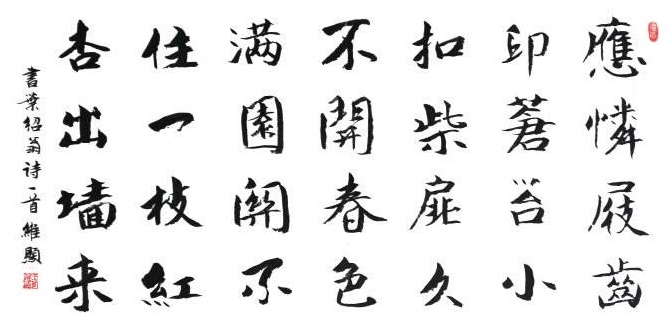 應憐屐齒
印蒼苔小
扣柴扉久
不開春色
满園關不
住一枝紅
杏出墙来
書葉紹翁诗一首維顯